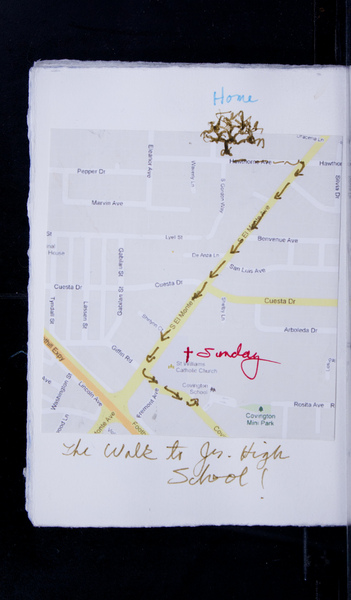 Home
Hawthorne Ave
Hawthor
Pepper Dr
Estates Ave
Silvia Dr
Marvin Ave
S Gordon Way
S El Monte Ave
Lyell St
Benvenue Ave
De Anza Ln
San Luis Ave
Gabilan St
Cuesta Dr
Cuesta Dr
Cuesta Dr
Tyndall St
Lassen St
S El Monte
Arboleda Dr
Giffin Rd
† Sunday
St Williams
Catholic Church
Covington
School
Washington St
Lincoln Ave
Rosita Ave
R
Covington
Mini Park
The Walk to Jr. High
School!